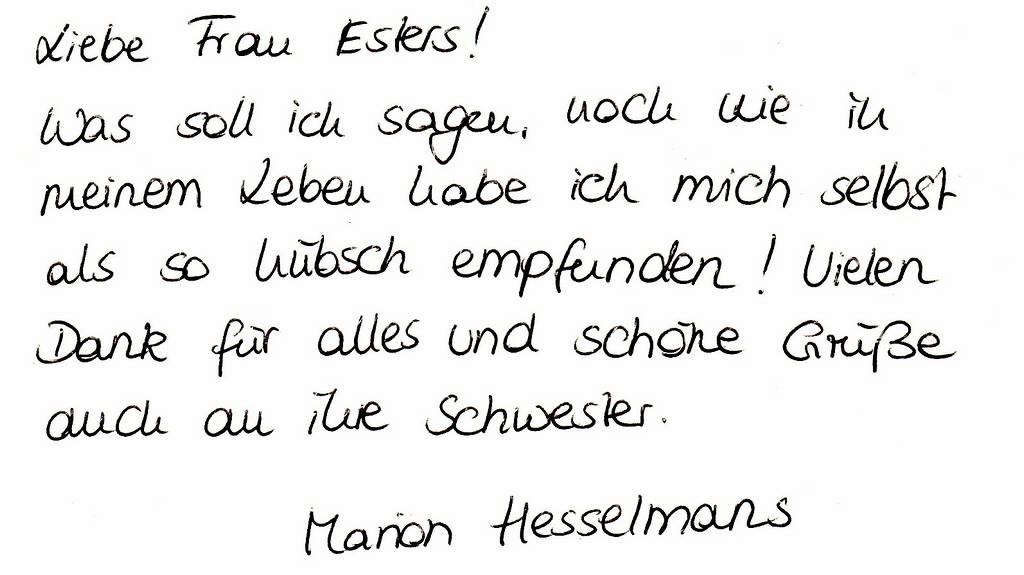 Liebe Frau Esters!
Was soll ich sagen, noch wie in
meinem Leben habe ich mich selbst
als so hübsch empfunden! Vielen
Dank für alles und schöne Grüße
auch an ihre Schwester.
Marion Hesselmans